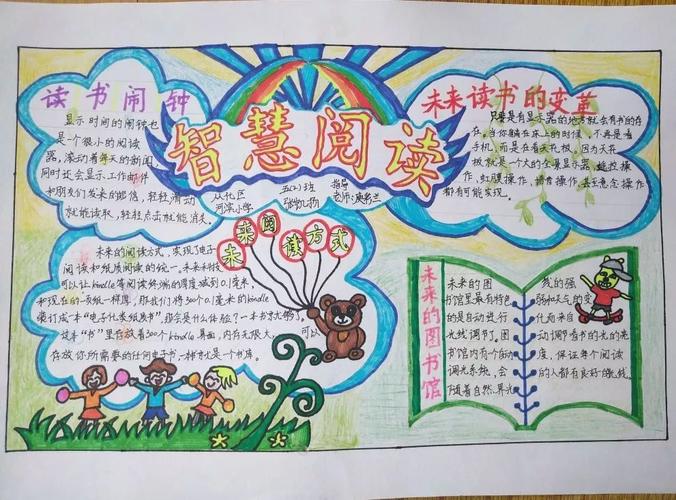 读书闹钟
显示时间的闹钟也
是一个很小的阅读
器,滚动着每天的新闻,
同时还会显示工作邮件
和朋友们发来的邮信,轻轻滑动
就能读取,轻轻点击就能消失。
智慧阅读
从化区
河滨小学
五(4)班
指导
老师:
未来读书的变革
只要是有显示器的地方就会有书的存
在。当你躺在床上的时候,不再是看
手机,而是在看天花板。因为天花
板就是一个大的全景显示器,遥控操
作,虹膜操作,语音操作,甚至意念操作
都有可能实现。
未来阅读方式
未来的阅读方式,实现了电子
阅读和纸质阅读的统一。未来科技
可以让kindle等阅读终端的厚度减到0.1毫米
和现在的一页纸一样厚,那我们将300个0.1毫米的kindle
装订成一本“电子化表纸质书”,那会是什么体验?一本书太够了。
这本“书”里存放着300个kindle界面,内有无限大,可以
存放你所需要的任何电子书,一本书也是一个书库。
未来的图书馆
未来的图
书馆里最有特色
的是自动进行
光线调节。图
书馆内有个自动
调光系统,会
随着自然界光
线的强
弱和天气的变
化而来自
动调节看书的光的亮
度,保证每个阅读
的人都有良好的光线。